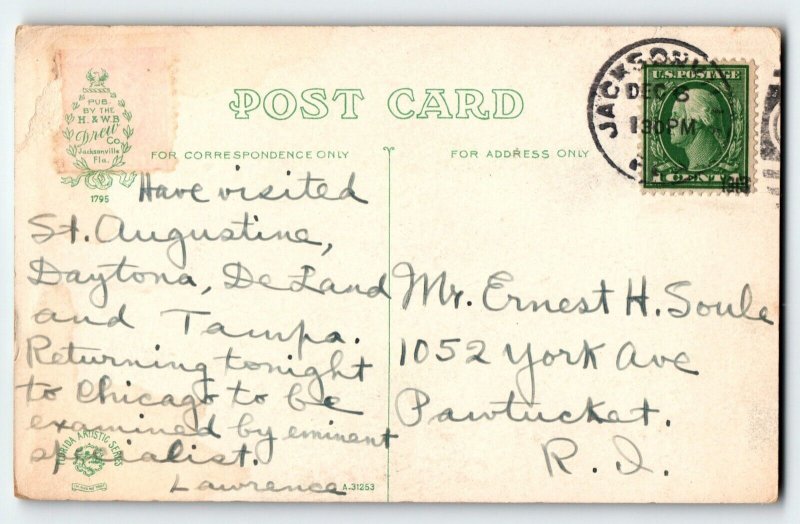 POST CARD
FOR CORRESPONDENCE ONLY
FOR ADDRESS ONLY
PUB.
BY THE
H. & W.B
Drew
Co.
Jacksonville
Fla.
1795
JACKSONV
DEC 6
130PM
1913
U.S. POSTAGE
1 CENT 1
Have visited
St. Augustine,
Daytona, De Land
and Tampa.
Returning tonight
to Chicago to be
examined by eminent
specialist.
Lawrence
Mr. Ernest H. Soule
1052 York Ave
Pawtucket.
R. I.
FLORIDA ARTISTIC SERIES
A-31253